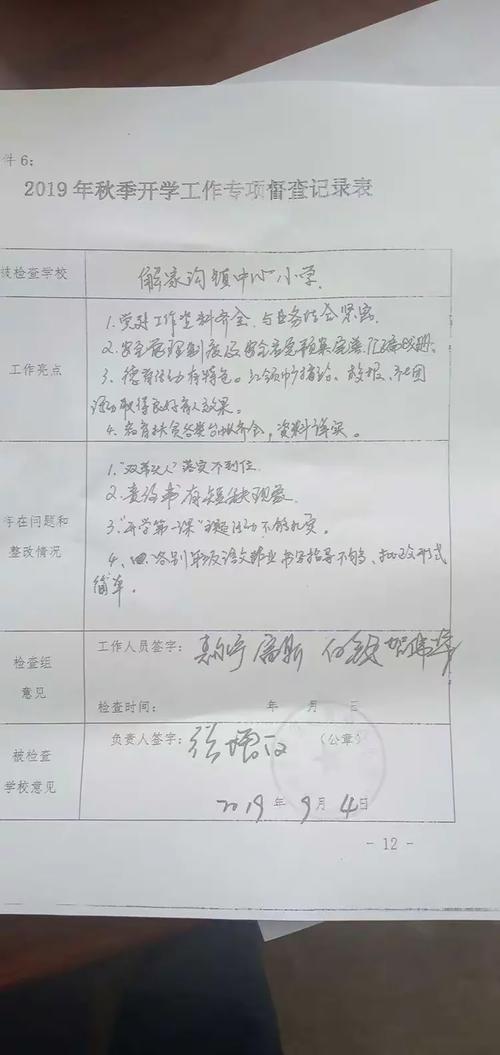 件6：
2019年秋季开学工作专项督查记录表
被检查学校
解家沟镇中心小学
工作亮点
1.党建工作资料齐全，与业务结合紧密
2.安全管理制度及安全应急预案完善，汇编成册。
3、德育活动有特色。红领巾广播站、敬报、社团
活动取得良好育人效果。
4.教育扶贫各类台账齐全，资料详实。
存在问题和
整改情况
1."双带头人"落实不到位
2.音像书有短缺现象
3."开学第一课"主题活动不够扎实。
4、个别年级语文作业书写指导不够、批改形式
简单。
检查组
意见
工作人员签字：
检查时间： 年 月 日
被检查
学校意见
负责人签字： （公章）
2019年9月4日
- 12 -